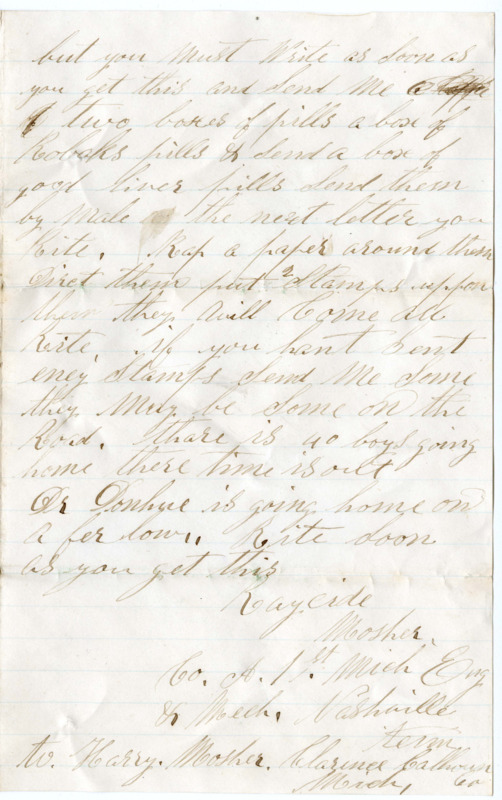 but you must Write as soon as
you get this and send me
two boxes of pills a box of
Robaks pills & send a box of
good liver pills send them
by male the next letter you
Rite. Rap a paper around them
Diret them put 2 stamps uppon
them they will Come all
Rite, if you hant sent
eney stamps send me some
they may be some on the
Road. thare is 40 boys going
home there time is out
Dr Donhue is going home on
a fer low,, Rite soon
as you get this
Mosher,
Co. A. 1st. Mich Eng
& Mech. Nashville
Tenn
to. Harry. Mosher. Clarence Calhoun
Mich, Co